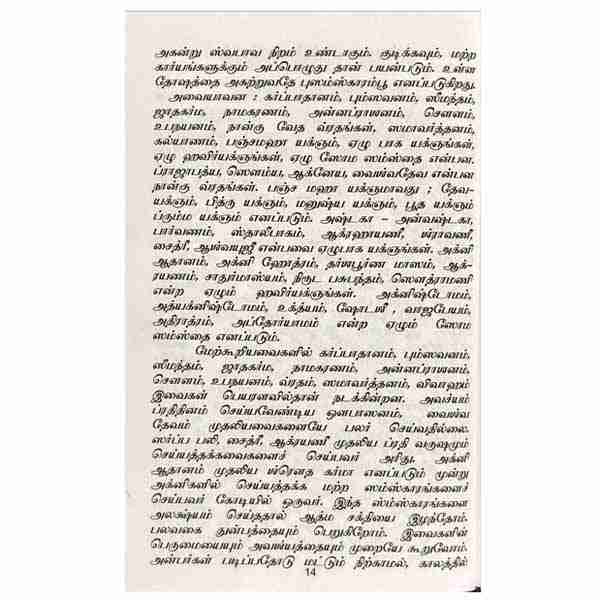 அகன்று ஸ்வபாவ நிறம் உண்டாகும். குடிக்கவும், மற்ற
கார்யங்களுக்கும் அப்பொழுது தான் பயன்படும். உள்ள
தோஷத்தை அகற்றுவதே புஸம்ஸ்காரம்பூ எனப்படுகிறது.
அவையாவன : கர்ப்பாதானம், பும்ஸவனம், ஸீமந்தம்,
ஜாதகர்ம, நாமகரணம், அன்னப்ராஶனம், சௌளம்,
உபநயனம், நான்கு வேத வ்ரதங்கள், ஸமாவர்த்தனம்,
கல்யாணம், பஞ்சமஹா யக்ஞம், ஏழு பாக யக்ஞங்கள்,
ஏழு ஹவிர்யக்ஞங்கள், ஏழு ஸோம ஸம்ஸ்தை என்பன.
ப்ராஜாபத்ய, ஸௌம்ய, ஆக்னேய, வைஶ்வதேவ என்பன
நான்கு வ்ரதங்கள். பஞ்ச மஹா யக்ஞமாவது ; தேவ-
யக்ஞம், பித்ரு யக்ஞம், மனுஷ்ய யக்ஞம், பூத யக்ஞம்
ப்ரும்ம யக்ஞம் எனப்படும். அஷ்டகா – அன்வஷ்டகா,
பார்வணம், ஸ்தாலீபாகம், ஆக்ரஹாயணீ, ஶ்ராவணீ,
சைத்ரீ, ஆஶ்வயுஜீ என்பவை ஏழுபாக யக்ஞங்கள். அக்னி
ஆதானம், அக்னி ஹோத்ரம், தர்ஶபூர்ண மாஸம், ஆக்-
ரயணம், சாதுர்மாஸ்யம், நிரூட பசுபந்தம், ஸௌத்ராமணி
என்ற ஏழும் ஹவிர்யக்ஞங்கள். அக்னிஷ்டோமம்,
அத்யக்னிஷ்டோமம், உக்த்யம், ஷோடஶீ , வாஜபேயம்,
அதிராத்ரம், அப்தோர்யாமம் என்ற ஏழும் ஸோம
ஸம்ஸ்தை எனப்படும்.
மேற்கூறியவைகளில் கர்ப்பாதானம், பும்ஸவனம்,
ஸீமந்தம், ஜாதகர்ம, நாமகரணம், அன்னப்ராஶனம்,
சௌளம், உபநயனம், வ்ரதம், ஸமாவர்த்தனம், விவாஹம்
இவைகள் பெயரளவில்தான் நடக்கின்றன. அவச்யம்
ப்ரதிதினம் செய்யவேண்டிய ஔபாஸனம், வைஶ்வ
தேவம் முதலியவைகளையே பலர் செய்வதில்லை.
ஸர்ப்ப பலி, சைத்ரீ, ஆக்ரயணீ முதலிய ப்ரதி வருஷமும்
செய்யத்தக்கவைகளைச் செய்பவர் அரிது. அக்னி
ஆதானம் முதலிய ஶ்ரௌத கர்மா எனப்படும் மூன்று
அக்னிகளில் செய்யத்தக்க மற்ற ஸம்ஸ்காரங்களைச்
செய்பவர் கோடியில் ஒருவர். இந்த ஸம்ஸ்காரங்களை
அலக்ஷ்யம் செய்ததால் ஆத்ம சக்தியை இழந்தோம்.
பலவகை துன்பத்தையும் பெறுகிறோம். இவைகளின்
பெருமையையும் அவஶ்யத்தையும் முறையே கூறுவோம்.
அன்பர்கள் படிப்பதோடு மட்டும் நிற்காமல், காலத்தில்
14